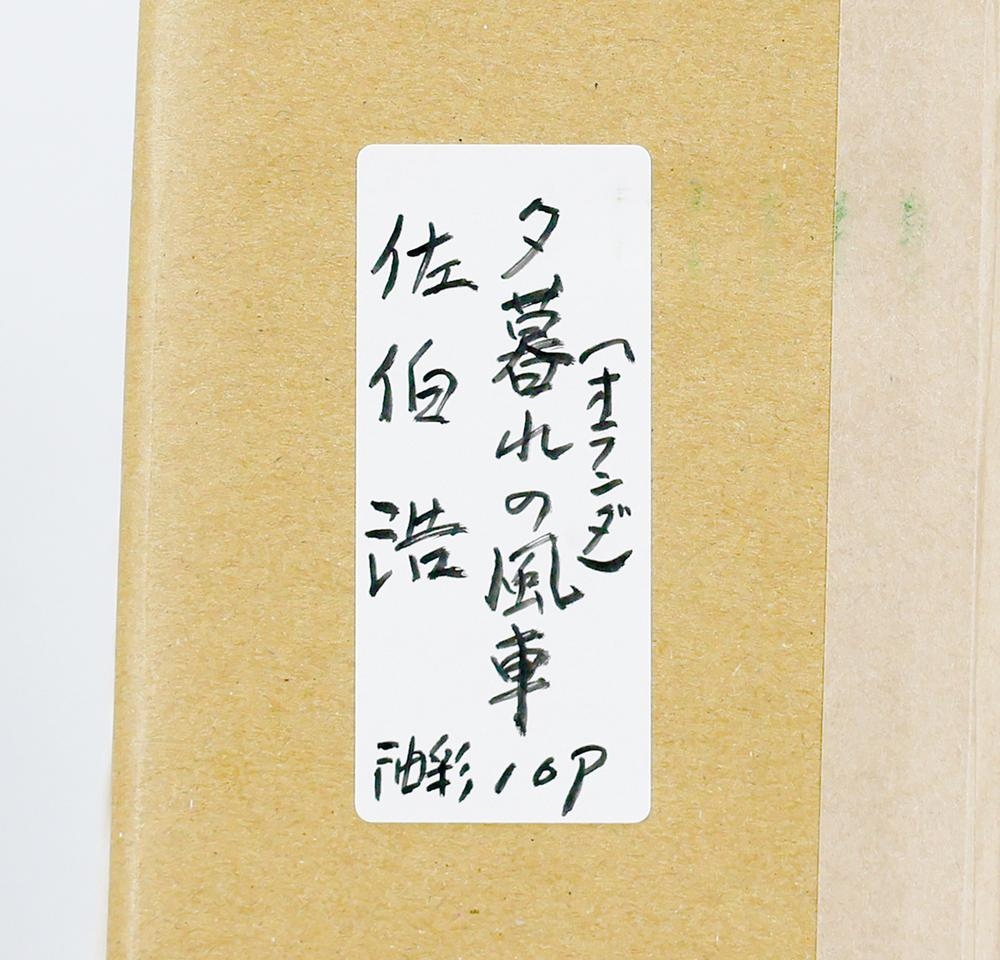 夕暮れの風車
(オランダ)
佐伯浩
油彩10P